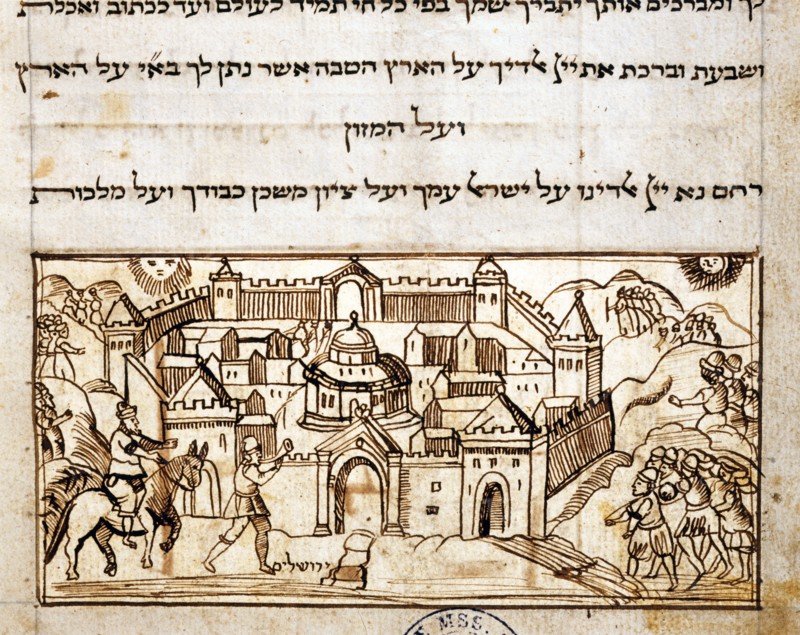 לך ומברכים אותך יתבריך שמך בפי כל חי תמיד לעולם ועד ככתוב ואכלת
ושבעת וברכת את ייי אלדיך על הארץ הטבה אשר נתן לך באי על הארץ
ועל המזון
רחם נא ייי אלדינו על ישראל עמך ועל ציון משכן כבודך ועל מלכות
ירושלים
MSS.